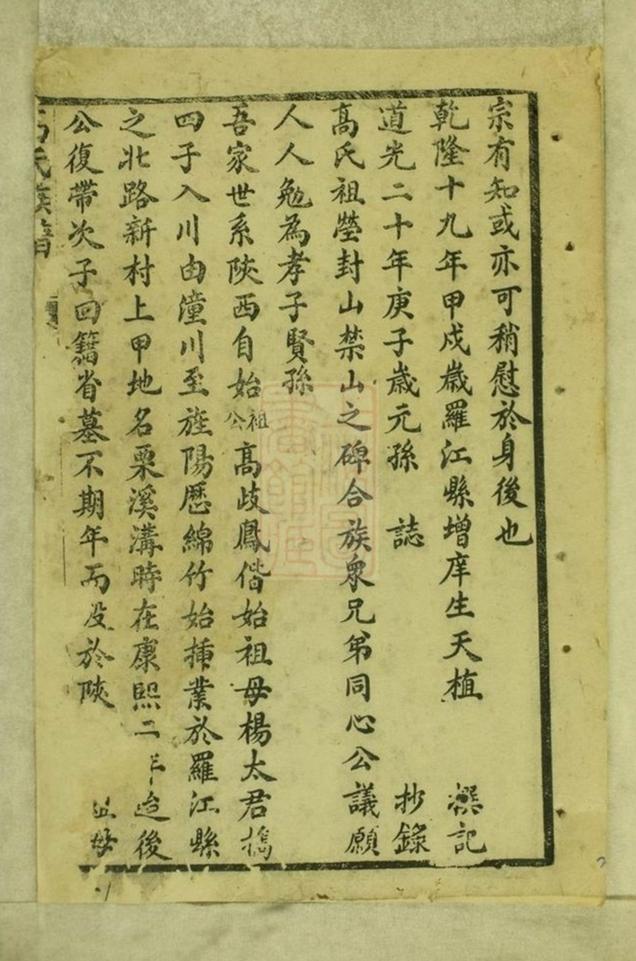 宗有知或亦可稍慰於身後也
乾隆十九年甲戌歲羅江縣增庠生天植 撰記
道光二十年庚子歲元孫 誌 抄錄
高氏祖塋封山禁山之碑合族衆兄弟同心公議願
人人勉為孝子賢孫
吾家世系陝西自始祖公高歧鳳偕始祖母楊太君攜
四子入川由潼川至旌陽歷綿竹始挿業於羅江縣
之北路新村上甲地名栗溪溝時在康熙二年迨後
公復帶次子回籍省墓不期年而没於陝 母
氏族譜